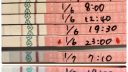 1/6 8:00
1/6 12:40
1/6 19:30
1/6 23:00
1/7 7:10